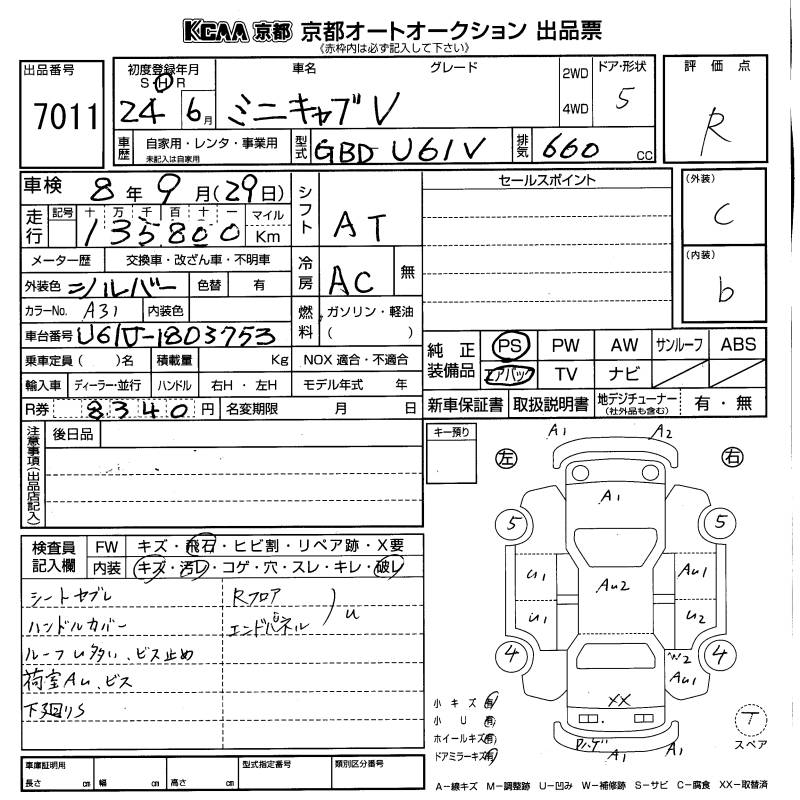 KCAA 京都 京都オートオークション 出品票
《赤枠内は必ず記入して下さい》
出品番号
7011
初度登録年月
S H R
24 6月
車名
グレード
ミニキャブV
2WD
4WD
ドア・形状
5
車歴
自家用・レンタ・事業用
未記入は自家用
型式
GBD U61V
排気
660 cc
評価点
R
車検 8年9月(29日)
走行
記号 十 万 千 百 十 一 マイル
135800 Km
メーター歴 交換車・改ざん車・不明車
外装色 シルバー 色替 有
カラーNo. A31 内装色
車台番号 U61V-1803753
乗車定員( )名 積載量 Kg
輸入車 ディーラー・並行 ハンドル 右H・左H
R券 8340円 名変期限 月 日
シフト
AT
冷房
AC 無
燃料
ガソリン・軽油
( )
NOX 適合・不適合
モデル年式 年
セールスポイント
(外装)
C
(内装)
b
純正装備品
PS PW AW サンルーフ ABS
エアバック TV ナビ
新車保証書 取扱説明書 地デジチューナー
(社外品も含む) 有・無
注意事項(出品店記入)
後日品
検査員記入欄
FW キズ・飛石・ヒビ割・リペア跡・X要
内装 キズ・汚レ・コゲ・穴・スレ・キレ・破レ
シートヤブレ
ハンドルカバー
ルーフU多い、ビス止め
荷室AU、ビス
下廻りS
Rフロア
エンドパネル
U
キー預り
左
右
A1 A2
A1
5 5
U1 AU1
AU2
U1 U2
4 4
W2
AU1
XX
ハゲ
A1 A1
小キズ 有
小U 有
ホイールキズ 有
ドアミラーキズ 有
T
スペア
車庫証明用
長さ cm 幅 cm 高さ cm
型式指定番号
類別区分番号
A−線キズ M−調整跡 U−凹み W−補修跡 S−サビ C−腐食 XX−取替済